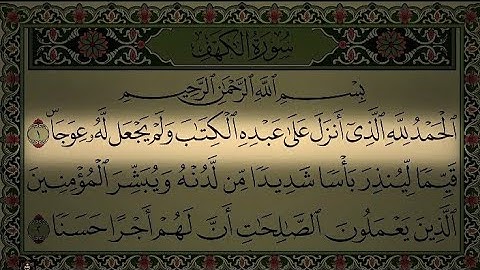 سُورَةُ الْكَهْفِ
بِسْمِ اللَّهِ الرَّحْمَٰنِ الرَّحِيمِ
الْحَمْدُ لِلَّهِ الَّذِي أَنزَلَ عَلَىٰ عَبْدِهِ الْكِتَٰبَ وَلَمْ يَجْعَل لَّهُ عِوَجَا ۜ ١
قَيِّمًا لِّيُنذِرَ بَأْسًا شَدِيدًا مِّن لَّدُنْهُ وَيُبَشِّرَ الْمُؤْمِنِينَ
الَّذِينَ يَعْمَلُونَ الصَّٰلِحَٰتِ أَنَّ لَهُمْ أَجْرًا حَسَنًا ٢